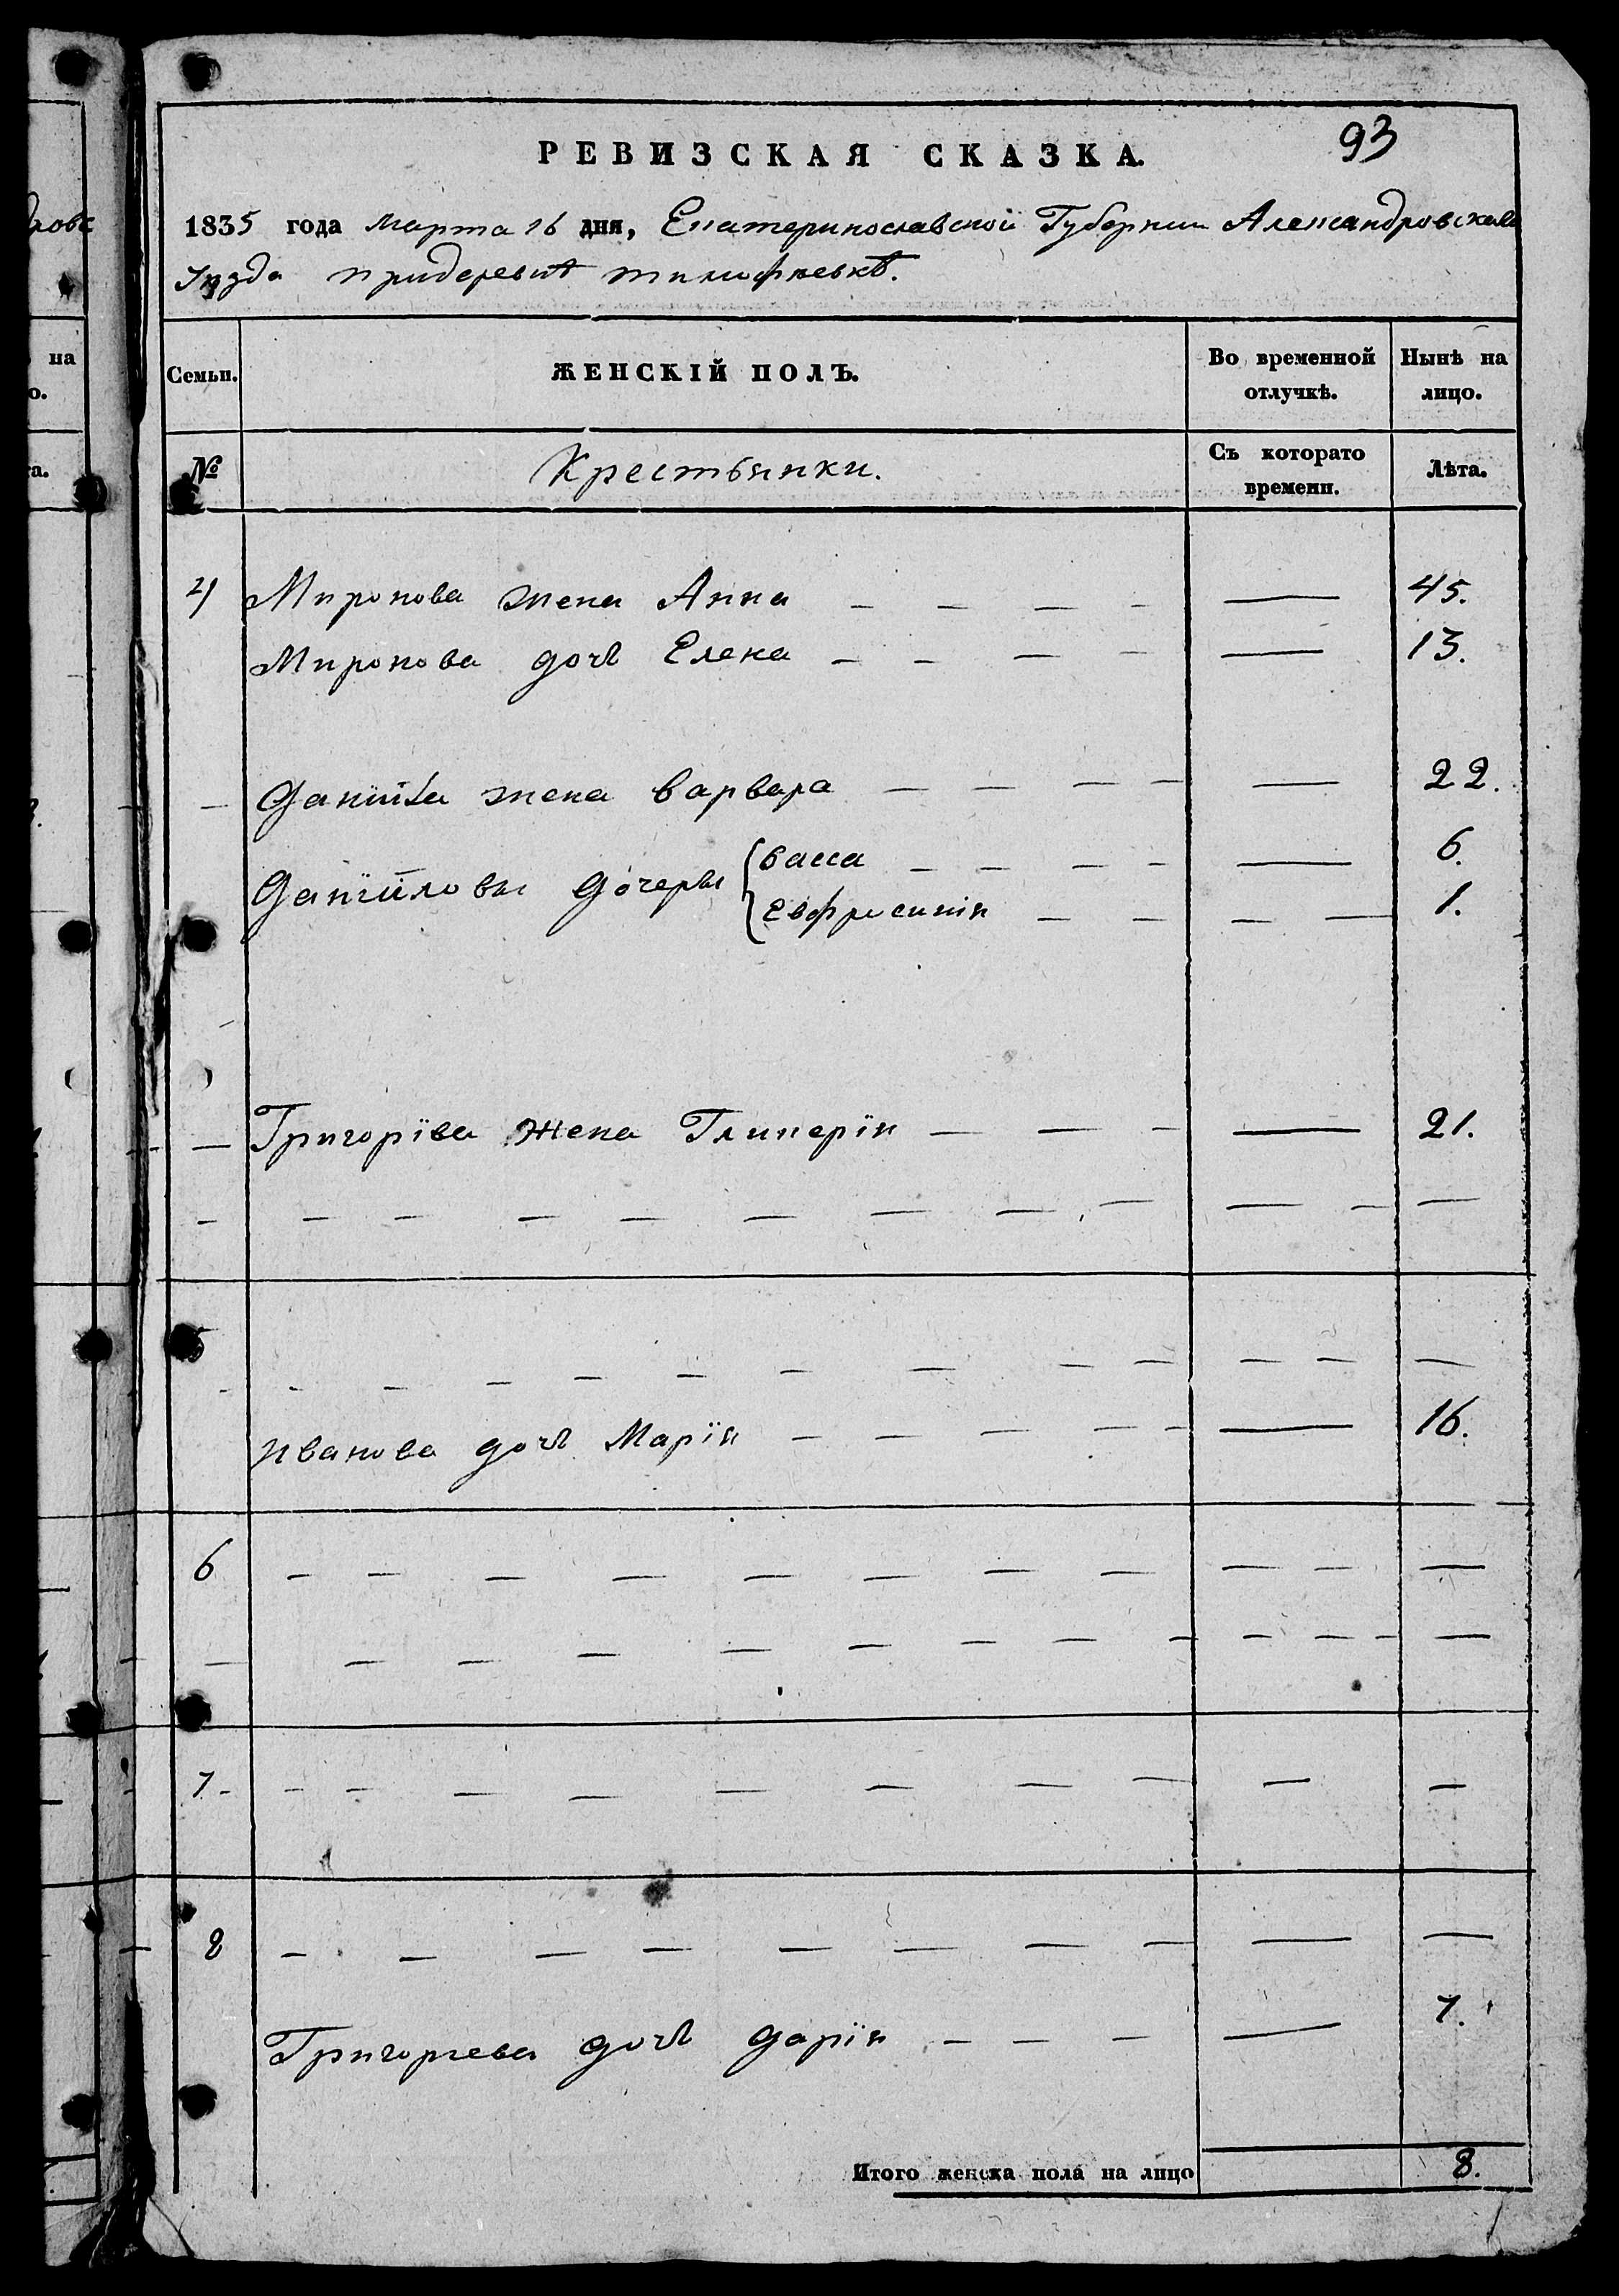 93
РЕВИЗСКАЯ СКАЗКА.
1835 года марта 16 дня, Екатеринославской Губернии Александровскаго
уезда придеревнѣ тимофѣевкѣ.
Семьи. ЖЕНСКІЙ ПОЛЪ. Во временной отлучкѣ. Нынѣ на лицо.
№ Крестьянки. Съ которато времени. Лѣта.
4 Миронова жена Анна — — — — — 45.
Миронова дочь Елена — — — — — 13.
— Данила жена варвара — — — — — 22.
Даниловы дочеры { васса — — — — — 6.
Евфросинія — — — — 1.
— Григоріва жена Гликерія — — — — 21.
— — — — — — — — — — — —
5 — — — — — — — — — — —
Иванова дочь Марія — — — — — — 16.
6 — — — — — — — — — — —
— — — — — — — — — — — — —
7 - — — — — — — — — — —
8 — — — — — — — — — —
Григорьева дочь дарія — — — — 7.
Итого женска пола на лицо 8.
на
о.
та.